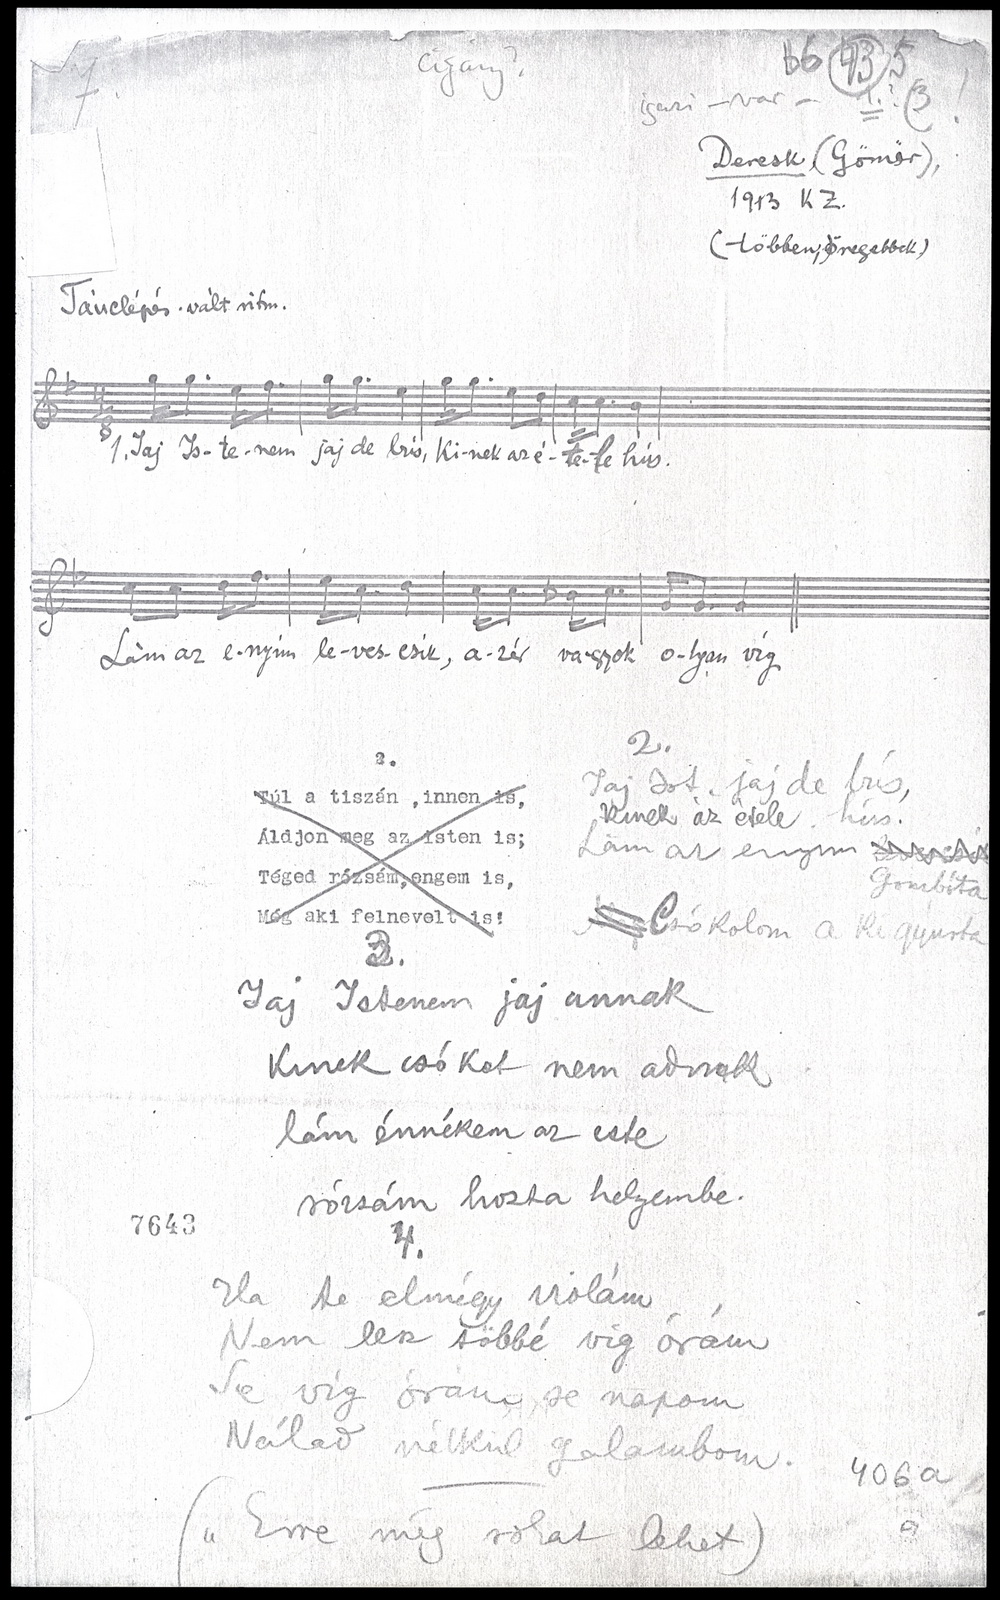 Cigány?
66 43 5
igazi - var - 1.? (3 !
Deresk (Gömör),
1913 KZ.
(többen, öregebbek)
Tánclépés. vált ritm.
1. Jaj Is-te-nem jaj de bús, Ki-nek az é-te-le hús.
Lám az e-nyim le-ves-csík, a-zér va-gyok o-lyan víg
2.
Jaj Ist. jaj de bús,
Kinek az étele hús.
Lám az enyim
Gombóta
Csókolom a ki gyúrta
2.
Túl a tiszán ,innen is,
Áldjon meg az isten is;
Téged rózsám,engem is,
Még aki felnevelt is!
3.
Jaj Istenem jaj annak
Kinek csókot nem adnak
lám énnékem az este
rózsám hozta helyembe.
7643
4.
Ha te elmégy violám
Nem lesz többé víg órám
Se víg órám, se napom
Nálad nélkül galambom.
406a
a
(„ Erre még sokat lehet)